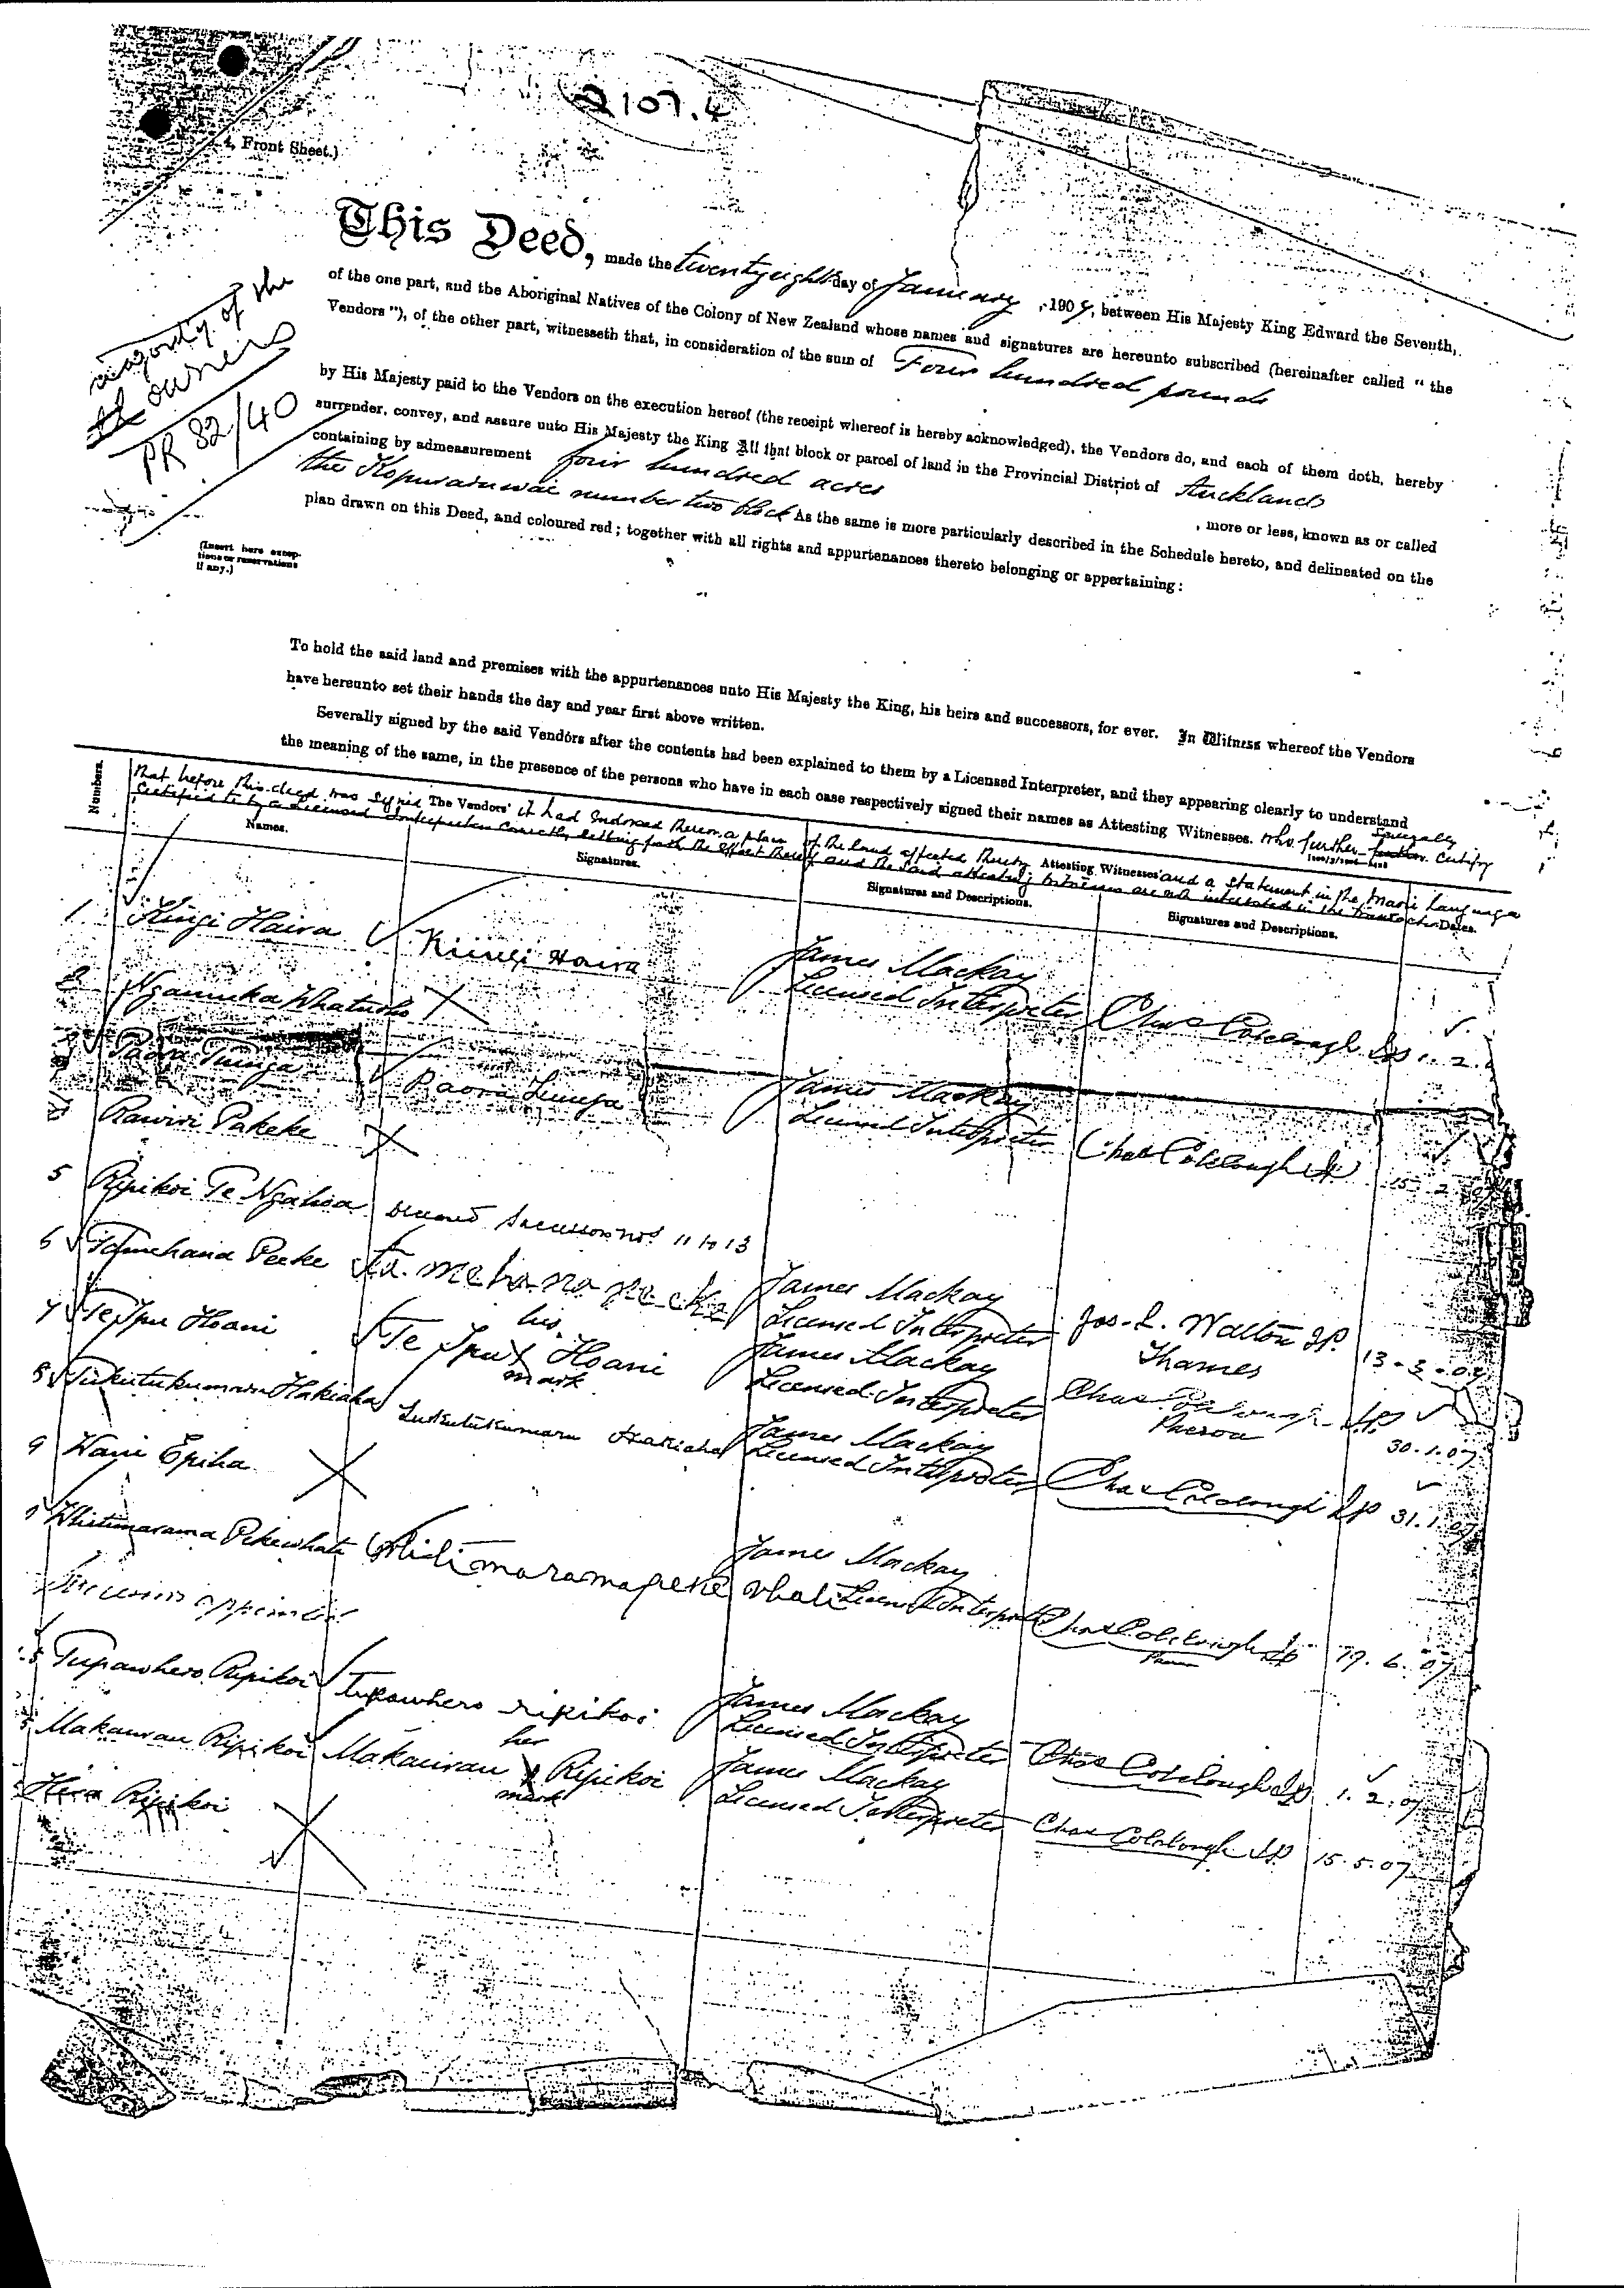 2107.4
4, Front Sheet.)
This Deed, made the twentyeighth day of January, 1907, between His Majesty King Edward the Seventh,
of the one part, and the Aboriginal Natives of the Colony of New Zealand whose names and signatures are hereunto subscribed (hereinafter called "the
Vendors"), of the other part, witnesseth that, in consideration of the sum of Four hundred pounds
by His Majesty paid to the Vendors on the execution hereof (the receipt whereof is hereby acknowledged), the Vendors do, and each of them doth, hereby
surrender, convey, and assure unto His Majesty the King All that block or parcel of land in the Provincial District of Auckland
containing by admeasurement four hundred acres, more or less, known as or called
the Kopuraruwai number two block As the same is more particularly described in the Schedule hereto, and delineated on the
plan drawn on this Deed, and coloured red; together with all rights and appurtenances thereto belonging or appertaining:
majority of the
owners
PR 82/40
(Insert here excep-
tions or reservations
if any.)
To hold the said land and premises with the appurtenances unto His Majesty the King, his heirs and successors, for ever. In Witness whereof the Vendors
have hereunto set their hands the day and year first above written.
Severally signed by the said Vendors after the contents had been explained to them by a Licensed Interpreter, and they appearing clearly to understand
the meaning of the same, in the presence of the persons who have in each case respectively signed their names as Attesting Witnesses. who further specially certify
that before this deed was signed it had indorsed thereon a plan of the land affected thereby and a statement in the Maori language
certified to by a Licensed Interpreter correctly setting forth the effect thereof and the said attesting witnesses are not interested in the transaction
Numbers. The Vendors' Attesting Witnesses'
Names. Signatures. Signatures and Descriptions. Signatures and Descriptions. Dates.
1 Kingi Haira Kiingi Haira James Mackay
Licensed Interpreter Chas Coleclough JP 1. 2.
2 Ngamuka Whatuoho
Paora Tuinga Paora Tuinga James Mackay
Licensed Interpreter Chas Coleclough JP 15. 2. 07
Rawiri Pakeke
5 Ripikoi Te Ngahoa deceased Successors nos 11 to 13
6 Tamehana Peeke Ta mehana peeke James Mackay
Licensed Interpreter Jos. L. Walton J.P.
Thames 13-3-07
7 Te Ipu Hoani Te Ipu his x mark Hoani James Mackay
Licensed Interpreter Chas. Coleclough J.P.
Paeroa 30.1.07
8 Tukutukumaru Hakiaha Tukutukumaru Hakiaha James Mackay
Licensed Interpreter Chas Coleclough JP 31.1.07
9 Wani Epiha
Whitimarama Pekewhati Whitimaramapeke whati James Mackay
Licensed Interpreter Chas Coleclough JP
Paeroa 19. 6. 07
Successors appointed
Tupawhero Ripikoi Tupawhero ripikoi James Mackay
Licensed Interpreter Chas Coleclough JP 1. 2. 07
Makaurau Ripikoi Makaurau her x mark Ripikoi James Mackay
Licensed Interpreter Chas Coleclough J.P. 15.5.07
Hera Ripikoi